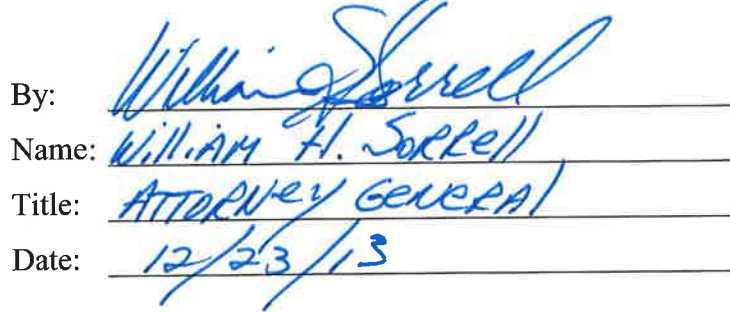 By: William H Sorrell
Name: William H. Sorrell
Title: Attorney General
Date: 12/23/13